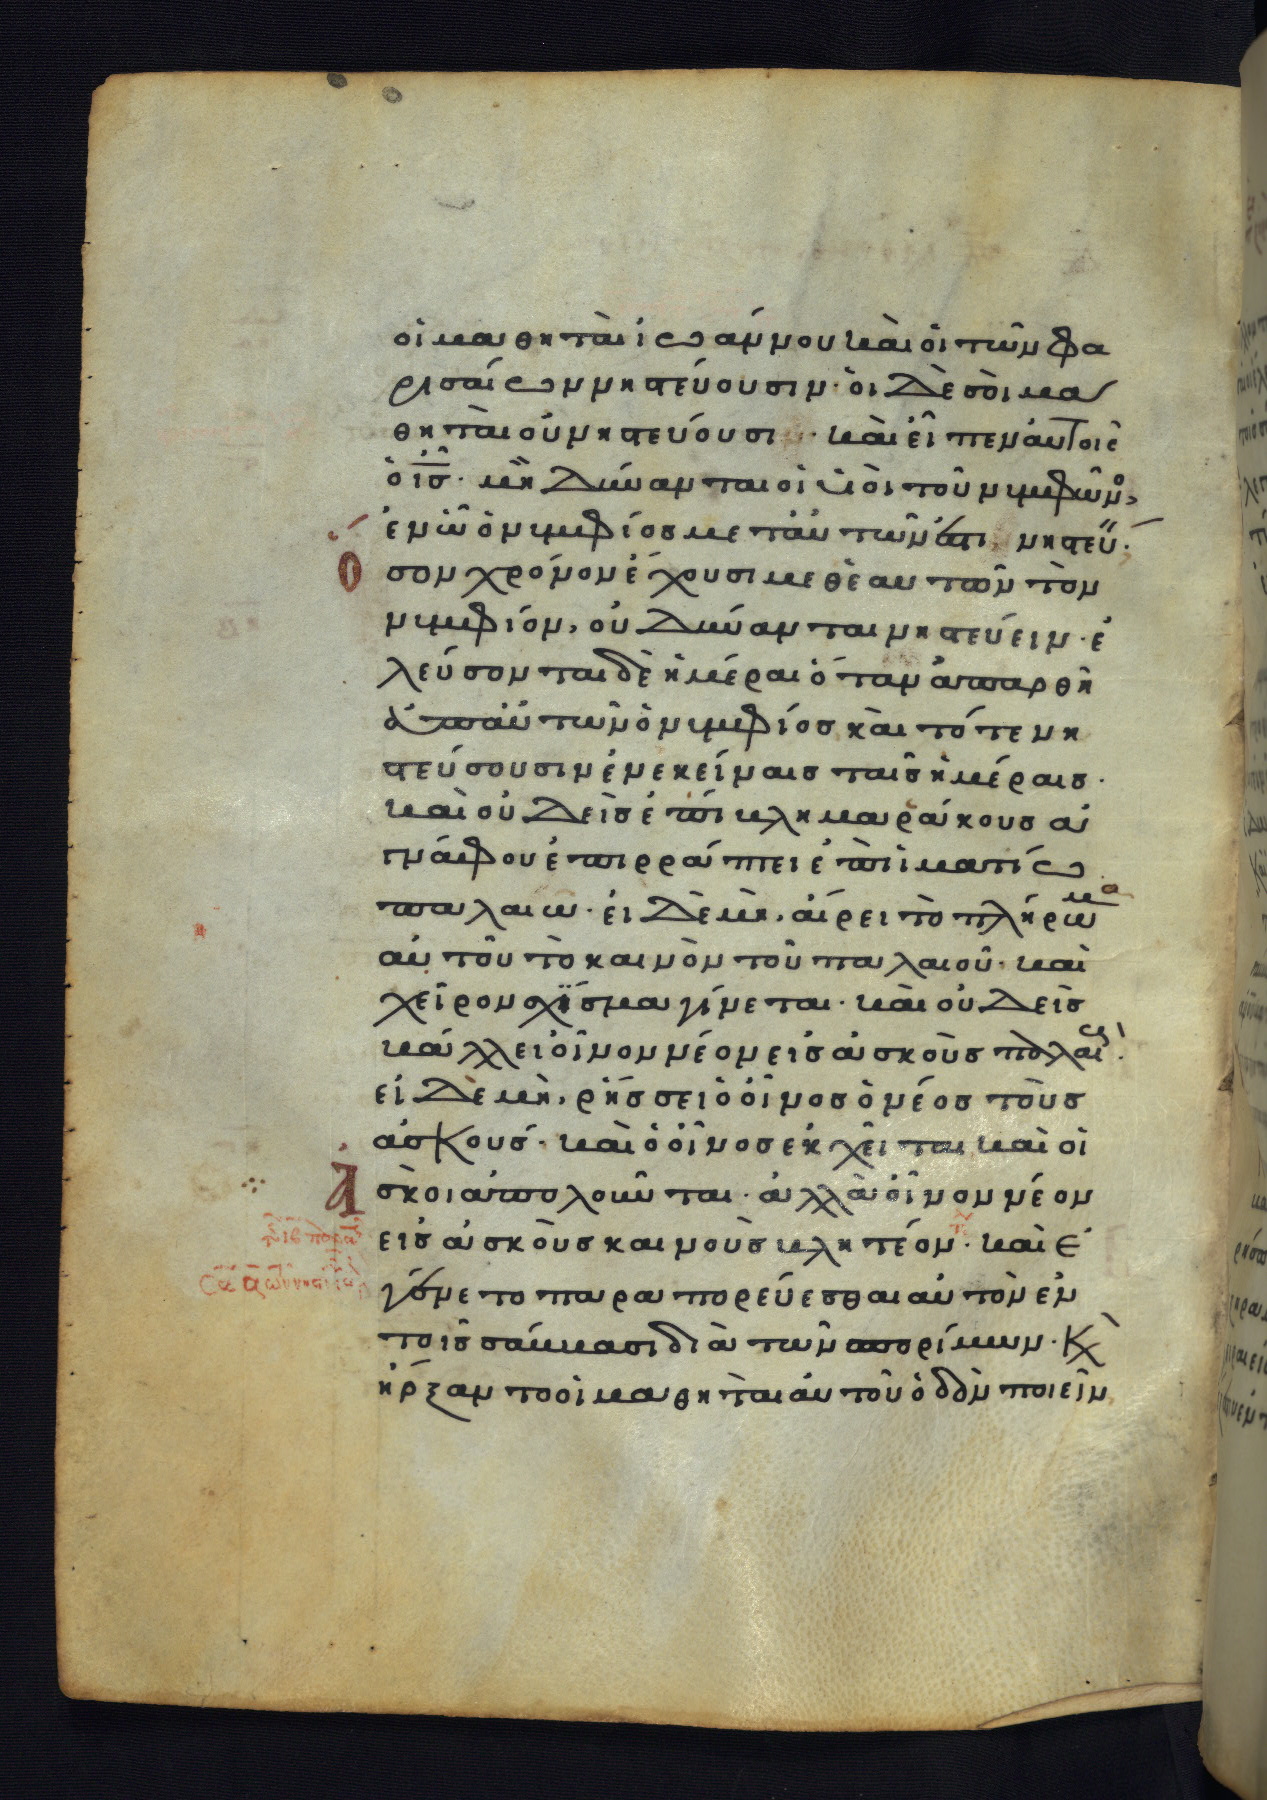 οἱ μαθηταὶ ἰωάννου καὶ οἱ τῶν φα
ρισαίων νηστεύουσιν· ὁι δὲ σὸι μα
θηταὶ οὐ νηστεύουσι· καὶ εἶπεν ἀυτοῖς
ὁ ις̅· μὴ δύνανται οἱ ὑιὸι τοῦ νυμφῶνο,
ἐν ὧ ὁ νυμφίος μετ ἀυτῶν ἐστι, νηστεύ·
Ὅσον χρόνον ἔχουσι μεθ ἑαυτῶν τὸν
νυμφίον, οὐ δύνανται νηστεύειν· ἐ
λεύσονται δὲ ἡμέραι ὅταν ἀπαρθῆ
ἀπ αὐτῶν ὁ νυμφίος καὶ τότε νη
στεύσουσιν ἐν εκείναις ταῖς ἡμέραις·
καὶ οὐδεὶς ἐπίβλημα ῥάκους ἀ
γνάφου ἐπιρράπτει ἐπὶ ἱματίω
παλαιω· ἐι δὲ μὴ, ἀίρει τὸ πλήρωμα
αὐτοῦ τὸ καινὸν τοῦ παλαιοῦ· καὶ
χεῖρον σχίσμα γίνεται· καὶ οὐδεὶς
βάλλει ὀῖνον νέον εἰς ἀσκοὺς παλαι·
εἰ δὲ μὴ, ρήσσει ὁ ὀῖνος ὁ νέος τοὺς
ἀσκούς· καὶ ὁ ὀῖνος εκχεῖται καὶ οἱ
Ἀσκοι ἀπολοῦνται· ἀλλὰ ὀῖνον νέον
εἰς ἀσκοὺς καινοὺς βλητέον· καὶ ἐ
γένετο παραπορεύεσθαι αὐτὸν ἐν
τοῖς σάββασι διὰ τῶν σπορίμων· Κ̀
ἤρξαντο οἱ μαθηταὶ ἀυτοῦ ὁδὸν ποιεῖν